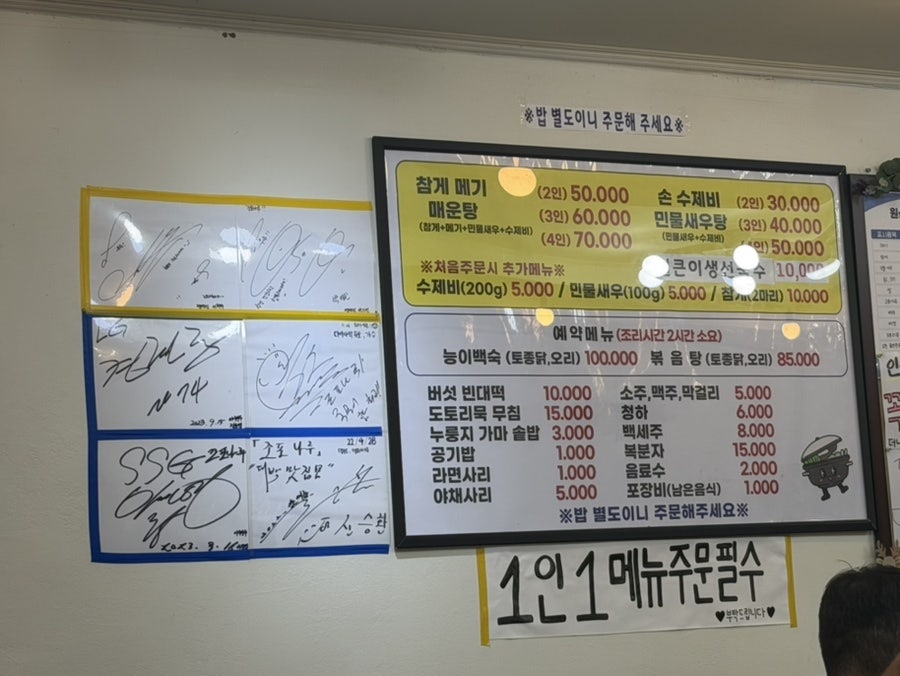 ※밥 별도이니 주문해 주세요※
참게 메기
매운탕
(참게+메기+민물새우+수제비)
(2인) 50.000
(3인) 60.000
(4인) 70.000
손 수제비
민물새우탕
(민물새우+수제비)
(2인) 30.000
(3인) 40.000
50.000
10,000
※처음주문시 추가메뉴※
수제비(200g) 5.000 / 민물새우(100g) 5.000 / 참게(2마리) 10.000
예약메뉴 (조리시간 2시간 소요)
능이백숙 (토종닭,오리) 100.000 볶음탕 (토종닭,오리) 85.000
버섯 빈대떡 10.000
도토리묵 무침 15.000
누룽지 가마 솥밥 3.000
공기밥 1.000
라면사리 1.000
야채사리 5.000
소주,맥주,막걸리 5.000
청하 6.000
백세주 8.000
복분자 15.000
음료수 2.000
포장비(남은음식) 1.000
※밥 별도이니 주문해주세요※
1인1메뉴주문필수
♥부탁드립니다♥
LG
No 74
2023. 9. 15
SSG
2023. 9. 15
22/9/28
맛집
신승환